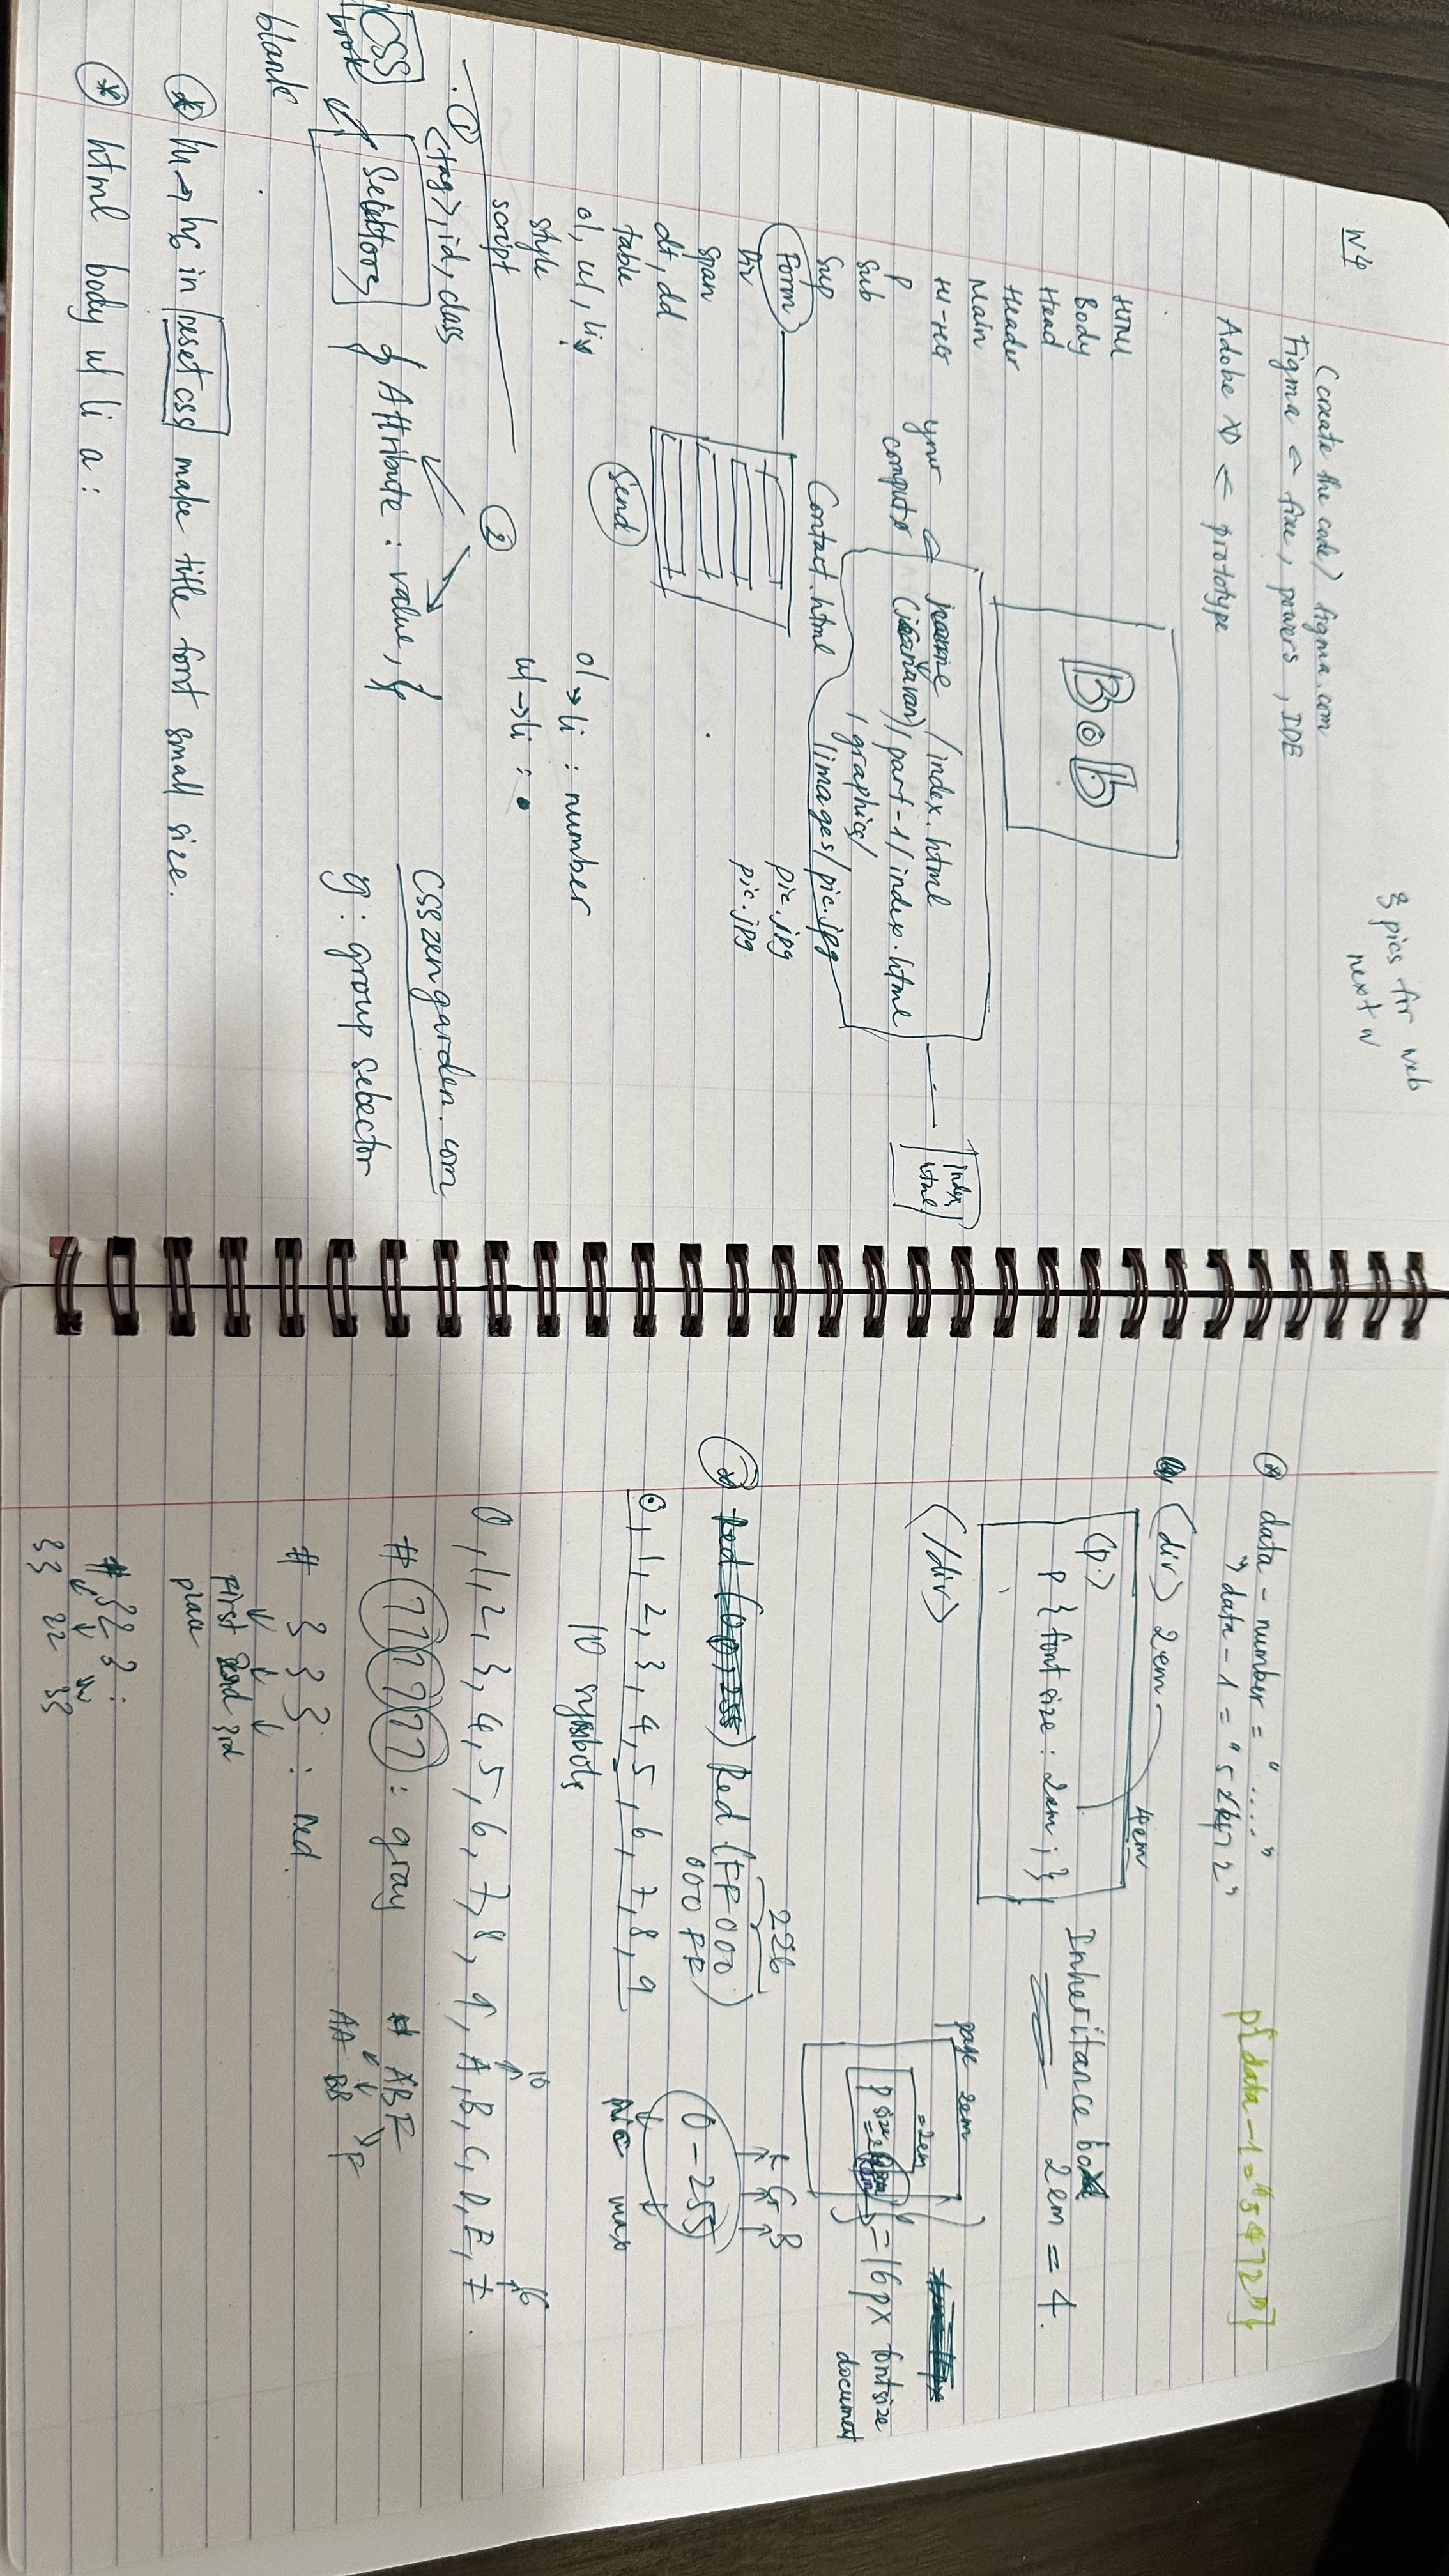 W4
3 pics for web
next w
(create the code) figma.com
Figma < free, powers, IDE
Adobe XD < prototype
HTML
Body
Head
Header
Main
H1-H6
P
Sub
Sup
Form
Div
Span
dt, dd
table
ol, ul, li
style
script
B o b
your
computer
/index.html
part-1/index.html
/graphics/
Contact.html
images/pic.jpg
pic.jpg
pic.jpg
index
html
Send
ol → li : number
ul → li :
①
<tag>, id, class
②
CSS
book
Selectors { Attribute : value, }
blank
csszengarden.com
g : group selector
* h1 → h6 in reset css make title font small size.
* html body ul li a :
* data-number = "....."
p[data-1="5472"]
(div) 2em
4em
(p.)
p { font size : 2em ; }
(/div)
Inheritance
2em = 4.
page 2em
=2em
p size
= 16px font size
document
* Red (FF000
000 FF)
226
R G B
0 - 255
max
0, 1, 2, 3, 4, 5, 6, 7, 8, 9
10 symbols
10
16
0, 1, 2, 3, 4, 5, 6, 7, 8, 9, A, B, C, D, E, F.
# 777777 : gray
# ABF
AA BB F
# } } } : red.
First 2nd 3rd
place
# 323 :
33 22 33